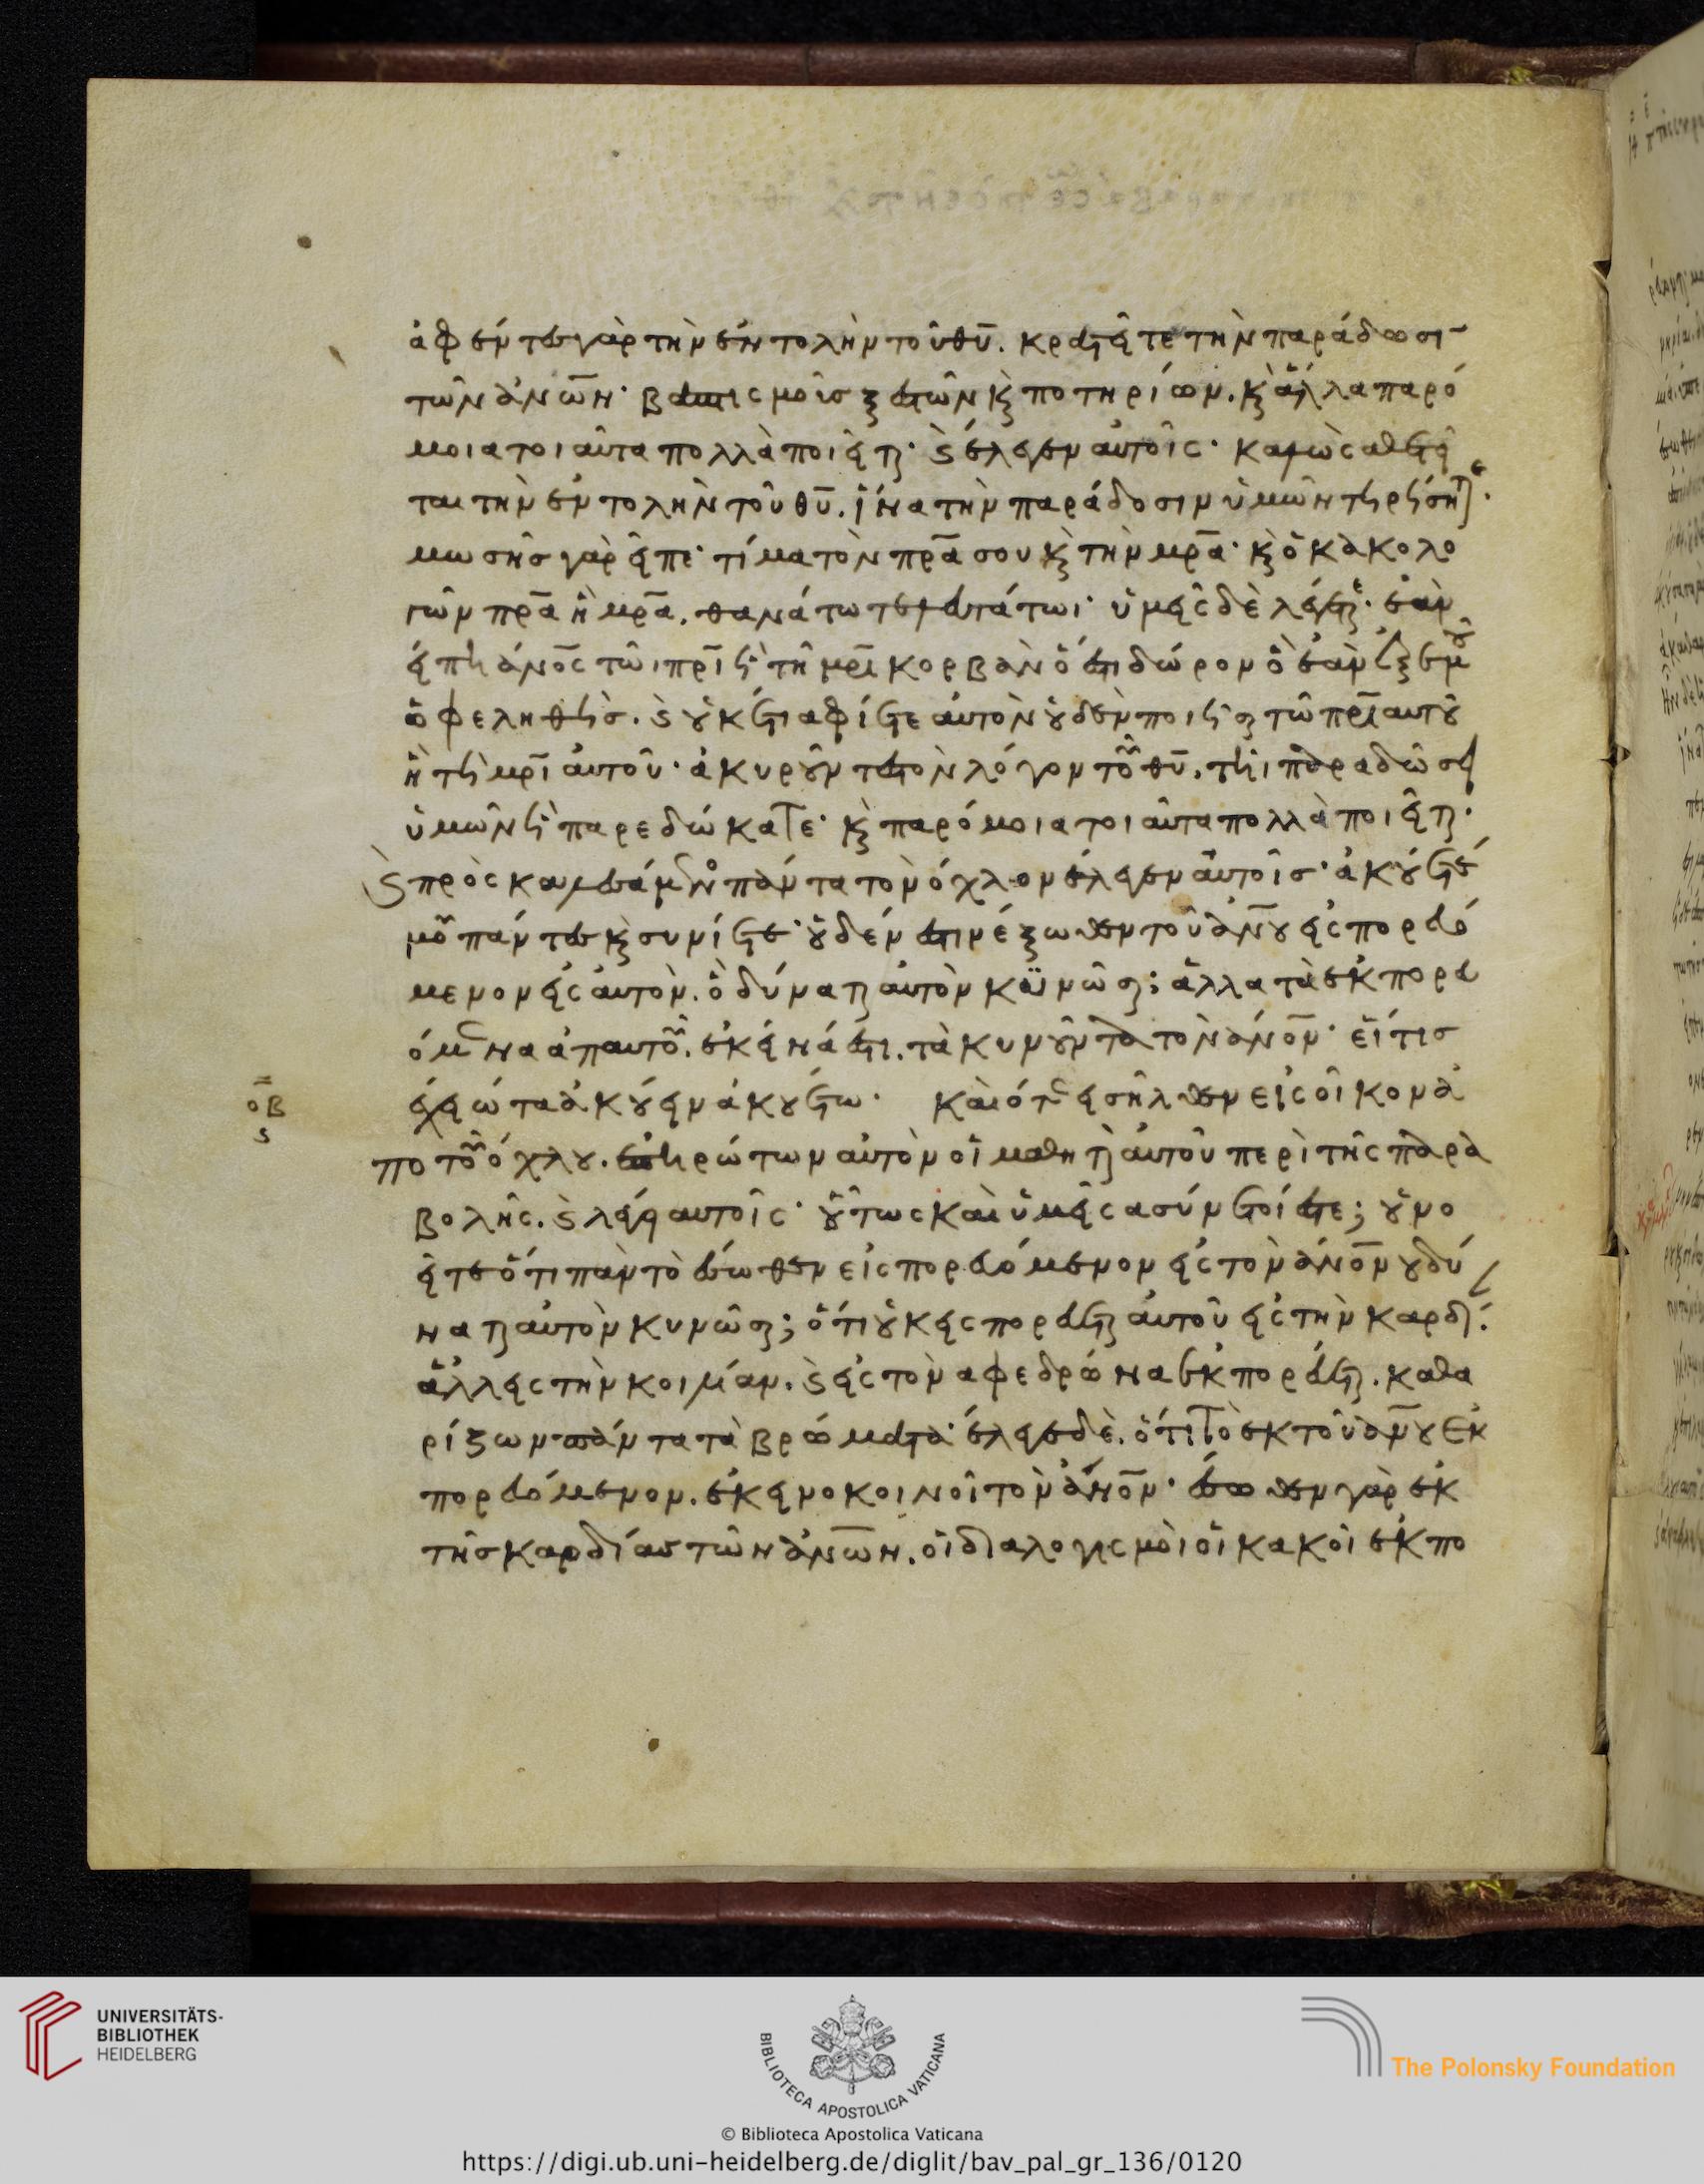 ἀφέντες γὰρ τὴν ἐντολὴν τοῦ θῡ. κρατεῖτε τὴν παράδωσι̅
τῶν ἀν̅ων· βαπτισμοῖσ ξεστῶν κ̀ ποτηρίων. κ̀ ἄλλα παρό
μοια τοιαῦτα πολλὰ ποιεῖτε· κ̀ ἔλεγεν αὐτοῖς· καλῶς ἀθετεῖ
ται τὴν ἐντολὴν τοῦ θῡ. ἵνα τὴν παράδοσιν ὑμῶν τηρήσητε.
μωσῆσ γὰρ εἶπε· τίμα τὸν πρ̅α σου κ̀ τὴν μρ̅α· κ̀ ὁ κακολο
γῶν πρ̅α ἢ μρ̅α. θανάτω τελευτάτωι· ὑμεῖς δὲ λέγετε· ἐὰν
εἴπη ἄνο̅ς τῶι πρ̅ι ἢ τῆ μρ̅ι κορβὰν ὅ ἐστι δώρον ὃ ἐὰν ἐξ ἐμοῦ
ὀφεληθῆσ. κ̀ οὐκέτι ἀφίετε αὐτὸν οὐδὲν ποιῆσαι τῶ πρ̅ι αὐτοῦ
ἢ τῆ μρ̅ι αὐτοῦ· ἀκυροῦντες τὸν λόγον τοῦ θῡ. τῆι παραδώσει
ὑμῶν ἧ παρεδώκατε· κ̀ παρόμοια τοιαῦτα πολλὰ ποιεῖτε·
κ̀ προσκαλεσάμενος πάντα τὸν ὄχλον ἔλεγεν αὐτοῖσ· ἀκούετέ
μου πάντες κ̀ συνίετε· οὐδέν ἐστιν ἔξωθεν τοῦ ἀν̅ου εἰσπορευό
μενον εἰς αὐτὸν. ὃ δύναται αὐτὸν κοινῶσαι; ἀλλὰ τὰ ἐκπορευ
όμενα ἀπ αὐτοῦ. ἐκεῖνά ἐστι. τὰ κυνοῦντα τὸν ἄνο̅ν· εἴ τισ
ἔχει ὦτα ἀκούειν ἀκουέτω· καὶ ὅτε εἰσῆλθεν εἰς οἶκον ἀ
ο̅β
ς
πὸ τοῦ ὄχλου. ἐπηρώτων αὐτὸν οἱ μαθηταὶ αὐτοῦ περὶ τῆς παρα
βολῆς. κ̀ λέγει αὐτοῖς· οὕτως καὶ ὑμεῖς ἀσύνετοί ἐστε; οὐ νο
εῖτε ὅτι πὰν τὸ ἔξωθεν εἰσπορευόμενον εἰς τὸν ἄνο̅ν οὐ δύ
ναται αὐτὸν κυνῶσαι; ὅτι οὐκ εἰσπορεύεται αὐτοῦ εἰς τὴν καρδί.
ἀλλ εἰς τὴν κοιλίαν. κ̀ εἰς τὸν ἀφεδρῶνα ἐκπορεύεται. καθα
ρίζων πάντα τὰ βρώματα· ἔλεγε δὲ. ὅτι τὸ ἐκ τοῦ ἀν̅ου ἐκ
πορευόμενον. ἐκεῖνο κοινοῖ τὸν ἄνο̅ν· ἔσωθεν γὰρ ἐκ
τῆσ καρδίας τῶν ἀν̅ων. οἱ διαλογισμοὶ οἱ κακοὶ ἐκπο
UNIVERSITÄTS-
BIBLIOTHEK
HEIDELBERG
BIBLIOTECA APOSTOLICA VATICANA
The Polonsky Foundation
© Biblioteca Apostolica Vaticana
https://digi.ub.uni-heidelberg.de/diglit/bav_pal_gr_136/0120